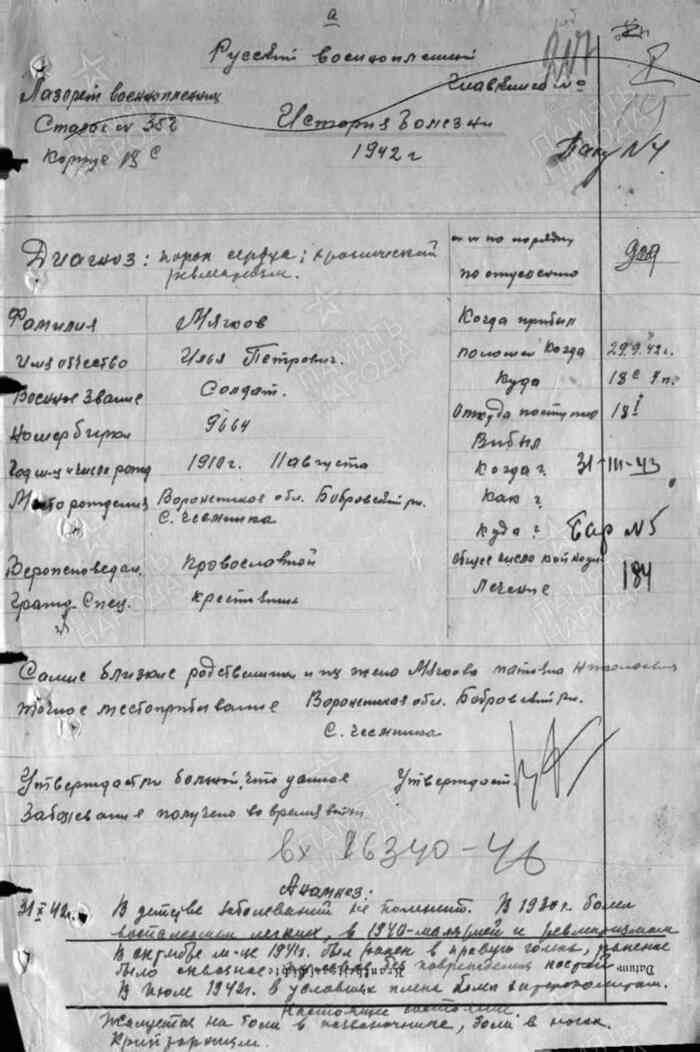 а
Русский военнопленный
Лазарет военнопленных
Главкнига №
Сталаг № 352
История болезни
Корпус 18 с
1942 г
Барак № 4
Диагноз: порок сердца; хронический
ревматизм.
№ № по порядку
по отпускению
Фамилия Мягков
Когда прибыл
Имя отчество Илья Петрович.
положен когда 29.9.42 г.
Военное звание Солдат.
Куда 18 с
Номер бирки 9664
Откуда поступил 18 I
Выбыл
Год м-ц и число рожд 1910 г. 11 августа
Когда? 31-III-43
Место рождения Воронежская обл. Бобровский рн.
с. Чесменка
Как?
Куда? Бар № 5
Вероисповедан. Православной
Общее число койкодн.
Лечение 184
Гражд. Спец. крестьянин
Самые близкие родственники и их жена Мягкова
точное местопребывание Воронежская обл. Бобровский рн.
с. Чесменка
Утверждает ли больной, что данное Утверждает
Заболевание получено во время войны
вх 26340-46
Анамнез:
31 X 42 г. В детстве заболеваний не помнит. В 1930 г. болел
воспалением легких, в 1940 - малярией и ревматизмом
В октябре м-це 1941 г. был ранен в правую голень, ранение
было сквозное без повреждения костей
Datum
Krankheitsverlauf
В июле 1942 г. в условиях плена болел энтероколитом.
Настоящее состояние.
Жалуется на боли в позвоночнике, боли в ногах.
ПАМЯТЬ НАРОДА